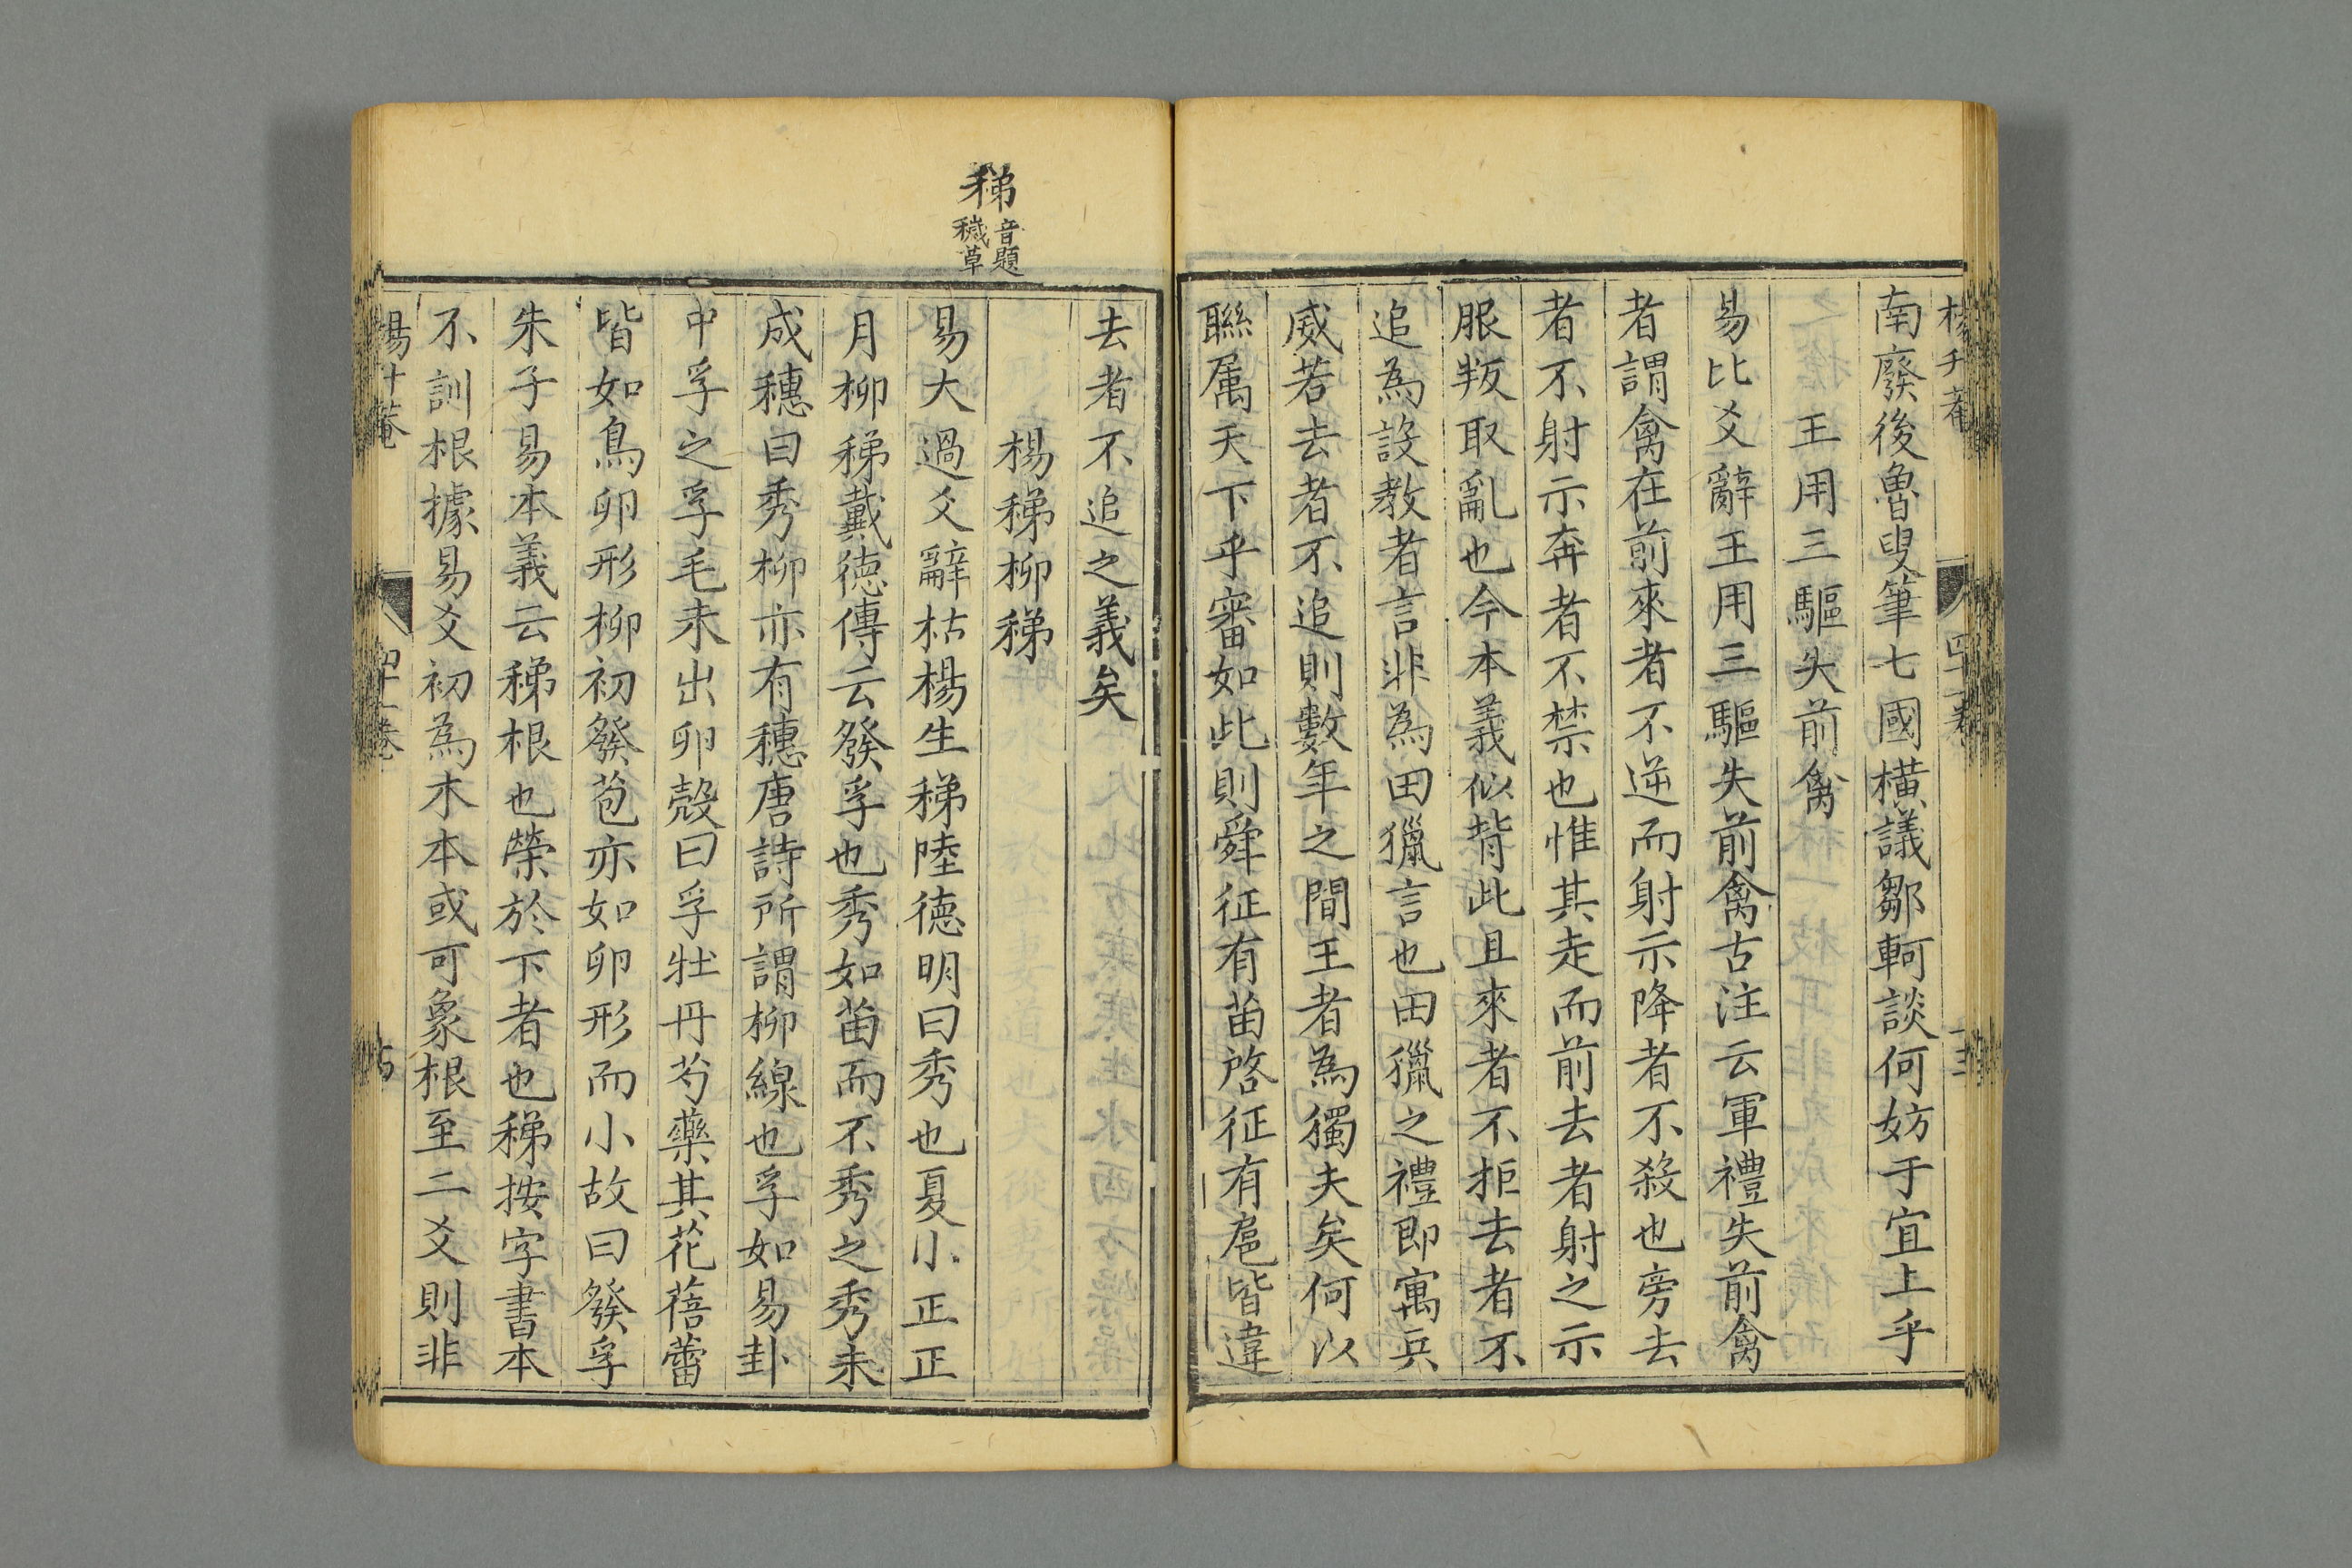 南廢後魯叟筆七國橫議鄒軻談何妨于宜上乎
王用三驅失前禽
易比爻辭王用三驅失前禽古注云軍禮失前禽
者謂禽在前來者不逆而射示降者不殺也旁去
者不射示奔者不禁也惟其走而前去者射之示
服叛取亂也今本義似背此且來者不拒去者不
追為設教者言非為田獵言也田獵之禮即寓兵
威若去者不追則數年之間王者為獨夫矣何以
聯属天下乎審如此則舜征有苗啓征有扈皆違
去者不追之義矣
楊稊柳稊
易大過爻辭枯楊生稊陸德明曰秀也夏小正正
月柳稊戴德傳云發孚也秀如苗而不秀之秀未
成穗曰秀柳亦有穗唐詩所謂柳線也孚如易卦
中孚之孚毛未出卵殼曰孚牡丹芍藥其花蓓蕾
皆如鳥卵形柳初發苞亦如卵形而小故曰發孚
朱子易本義云稊根也榮於下者也稊按字書本
不訓根據易爻初為木本或可象根至二爻則非
稊
音題
穢草